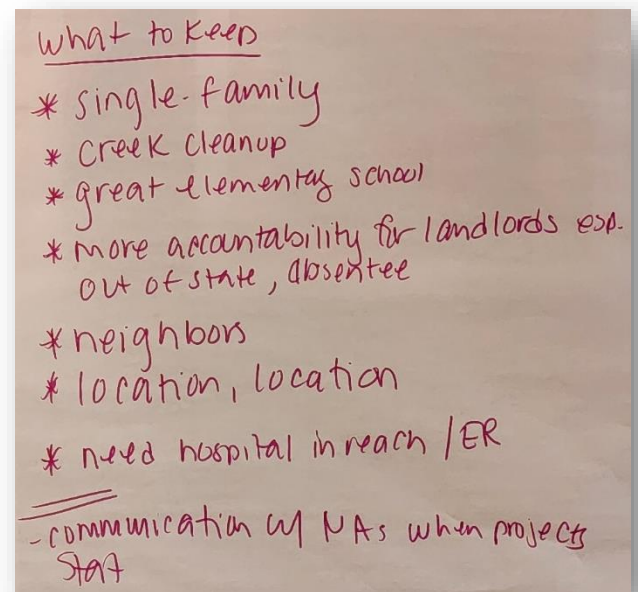 What to Keep
* single-family
* Creek cleanup
* great elementay school
* more accountability for landlords esp.
out of state, absentee
* neighbors
* location, location
* need hospital in reach / ER
- communication w/ NAs when projects
Start